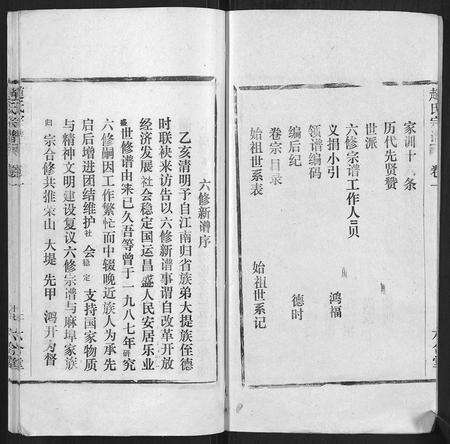 趙氏宗譜 卷一
家训十二条
历代先贤赞
世派
六修宗谱工作人员
义捐小引 鸿福
领谱编码
编后纪 德时
卷宗目录
始祖世系表 始祖世系记
六修新谱序
乙亥清明予自江南归省族弟大提族侄德
时联袂来访告以六修新谱事谓自改革开放
经济发展社会稳定国运昌盛人民安居乐业
盛世修谱由来已久吾等曾于一九八七年研究
六修嗣因工作繁忙而中辍晚近族人为承先
启后增进团结维护社会稳定支持国家物质
与精神文明建设复议六修宗谱与麻埠家族
归宗合修共推荣山大堤先甲鸿开为督
趙氏宗譜 卷一